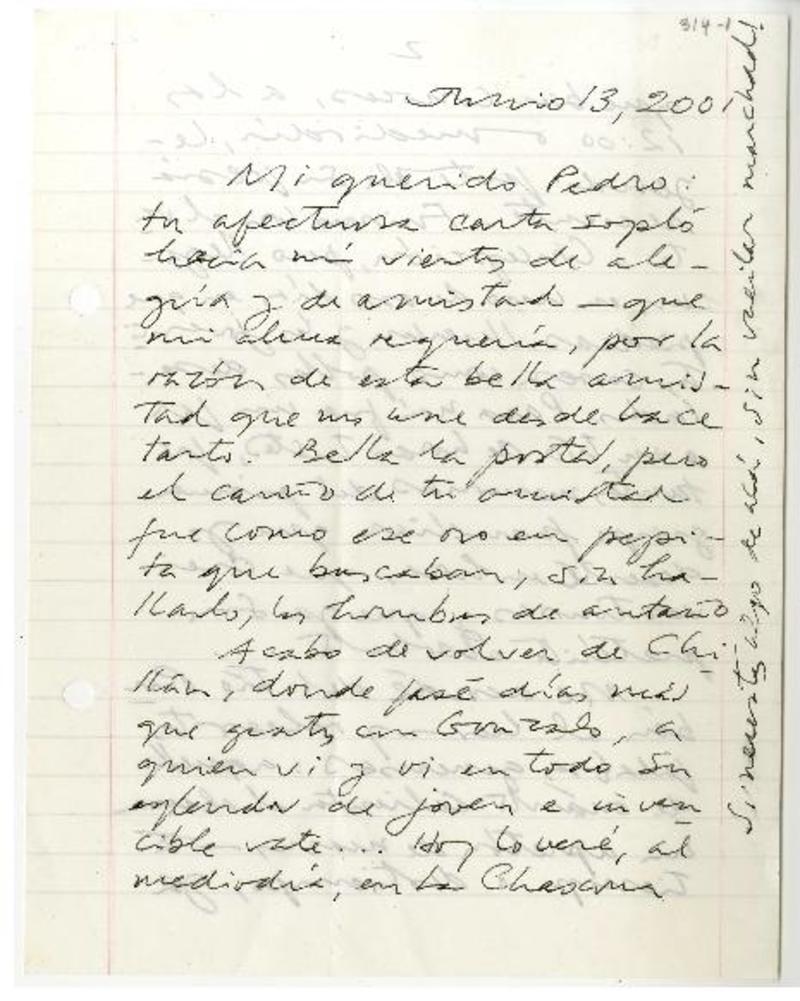 314-1
Junio 13, 2001
Mi querido Pedro:
tu afectuosa carta sopló
hacia mí vientos de ale-
gría y de amistad — que
mi alma requería, por la
razón de esta bella amis-
tad que nos une desde hace
tanto. Bella la postal, pero
el cariño de tu amistad
fue como ese oro en pepi-
ta que buscaban, sin ha-
llarlo, los hombres de antaño
Acabo de volver de Chi
llán, donde pasé días más
que gratos con Gonzalo, a
quien vi y oí en todo su
esplendor de joven e inven
cible vate... Hoy lo veré, al
mediodía, en La Chascona
Si necesitas algo de acá, sin vacilar mandad!